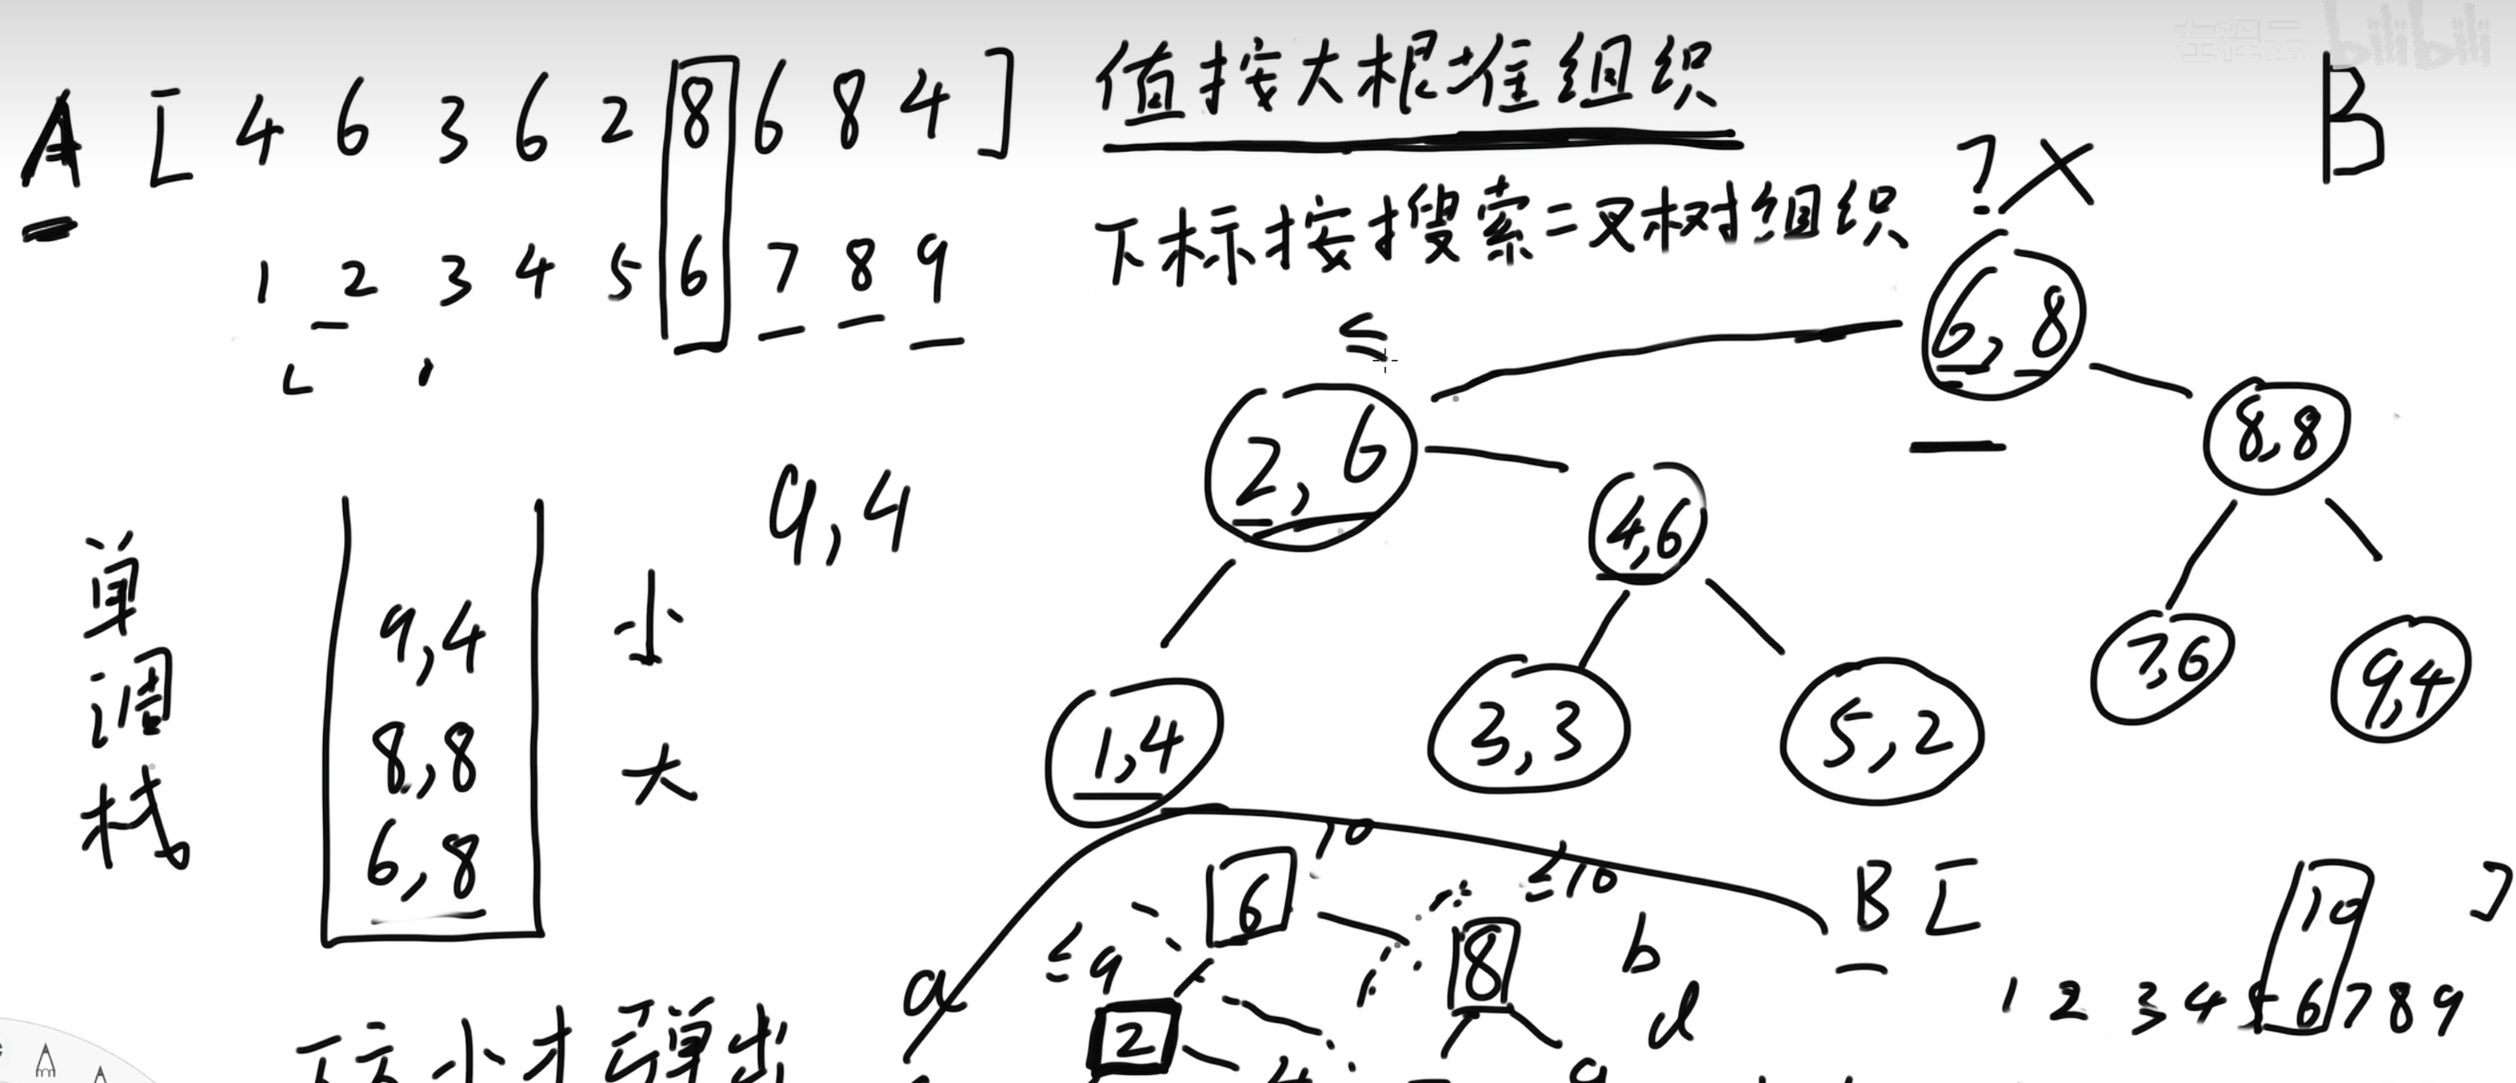 左程云 bilibili
A [ 4 6 3 6 2 8 6 8 4 ]
值按大根堆组织
B
1 2 3 4 5 6 7 8 9
下标按搜索二叉树组织
? X
L
≤
6, 8
2, 6
8,8
4,6
9,4
单调栈
9,4
8,8
6,8
小
大
1,4
3,3
5,2
7,6
9,4
6
10
≤10
≤9
8
a
b
d
2
B [ 10 ]
1 2 3 4 5 6 7 8 9
小才弹出